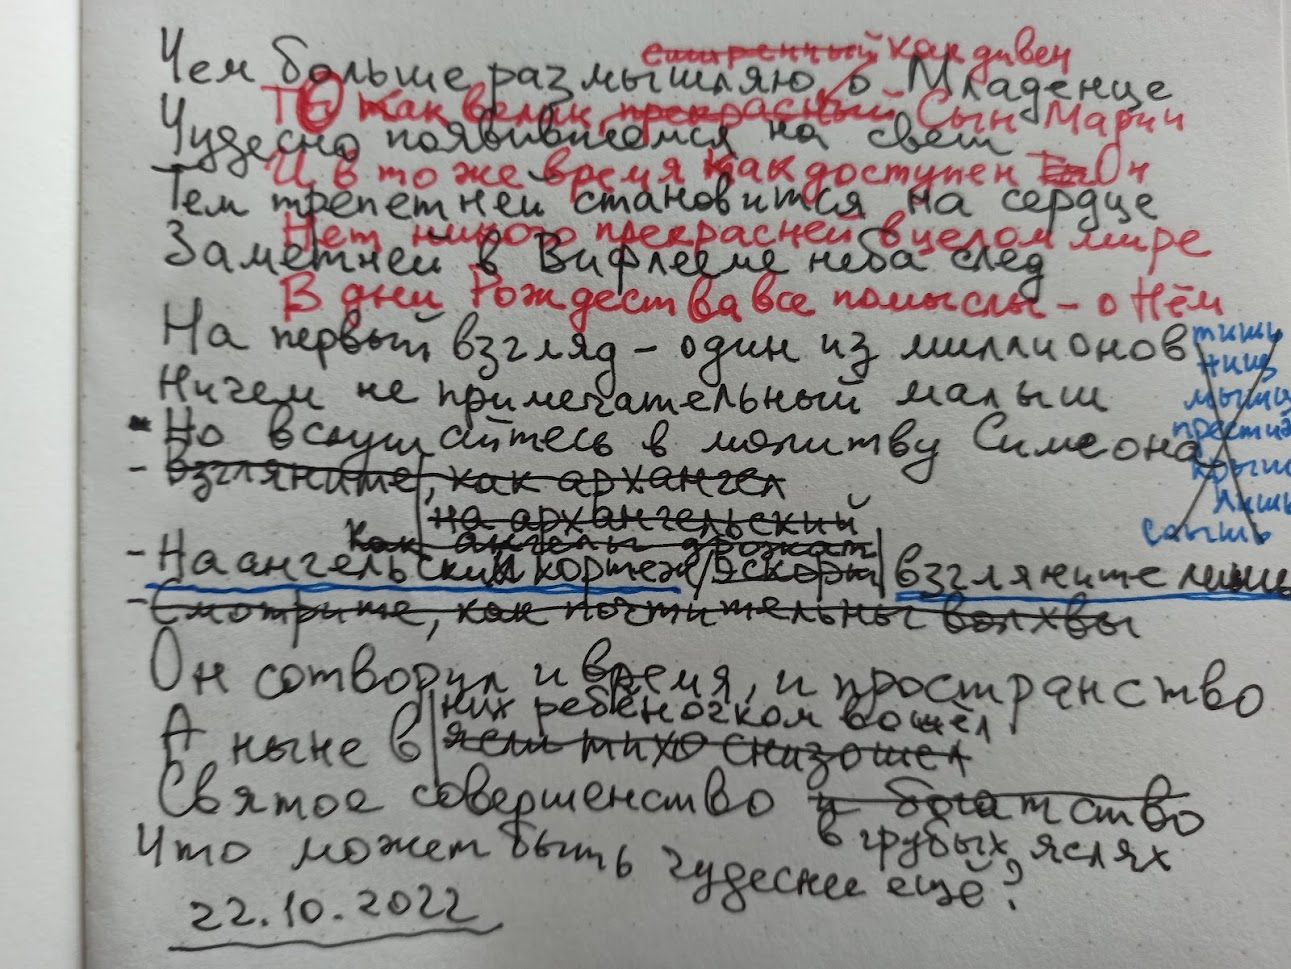 смиренный как дивен
Чем больше размышляю о Младенце
То как велик, прекрасный Сын Марии
Чудесно появившемся на свет
И в то же время как доступен Он
Тем трепетней становится на сердце
Нет никого прекрасней в целом мире
Заметней в Вифлееме неба след
В дни Рождества все помыслы – о Нём
На первый взгляд – один из миллионов
тишь
Ничем не примечательный малыш
ниш
мышь
- Но вслушайтесь в молитву Симеона
престиж
- Взгляните, как архангел
крыш
на архангельский
лишь
слышь
как ангелы дрожат
- На ангельский кортеж/эскорт взгляните лишь
- Смотрите, как почтительны волхвы
Он сотворил и время, и пространство
них ребёночком вошёл
А ныне в ясли тихо снизошел
Святое совершенство и богатство
в грубых яслях
Что может быть чудеснее ещё?
22.10.2022